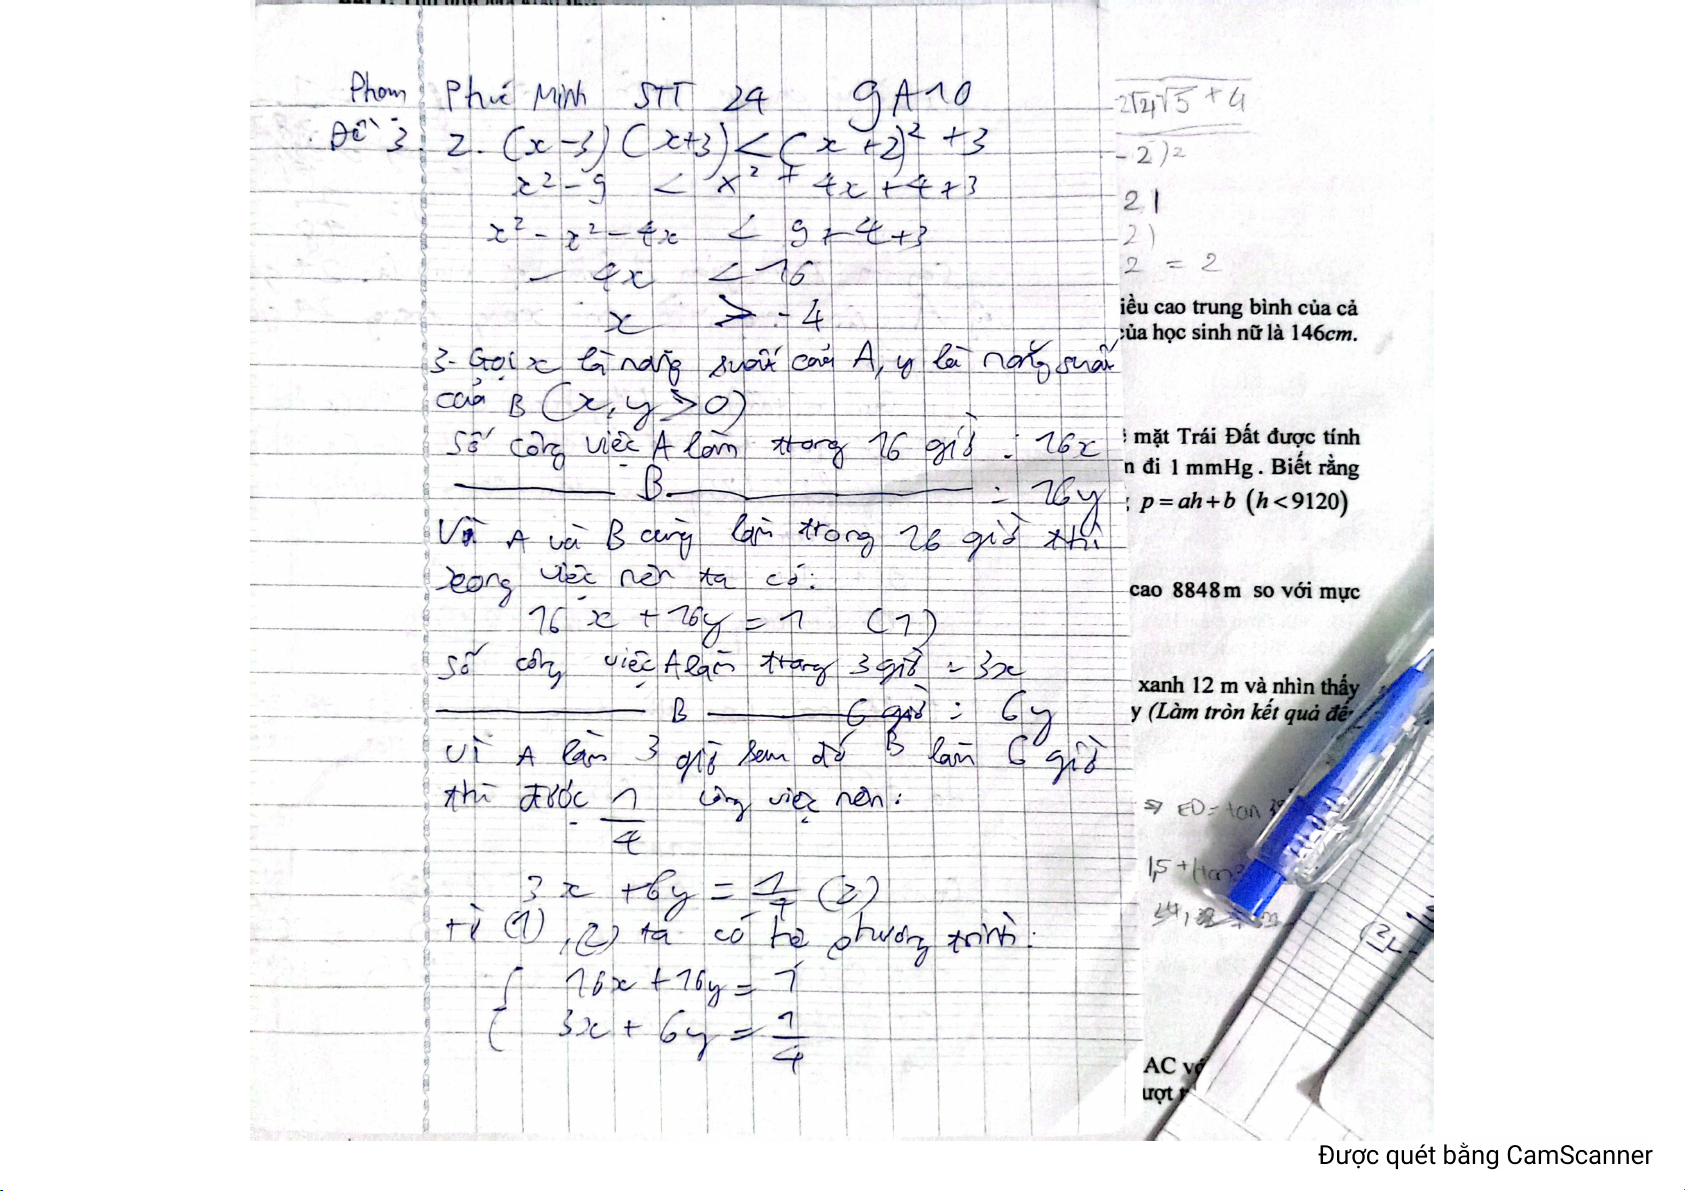 Phạm Phúc Minh STT 24 9A10
Đề 3. 2. (x-3)(x+3)<(x+2)² +3
x²-9 < x² + 4x+4+3
x²-x²-4x < 9+4+3
- 4x < 16
x > -4
3. Gọi x là năng suất của A, y là năng suất
của B (x, y > 0)
Số công việc A làm trong 16 giờ : 16x
B = 16y
Vì A và B cùng làm trong 16 giờ thì
xong việc nên ta có:
16x + 16y = 1 (1)
Số công việc A làm trong 3 giờ = 3x
B 6 giờ : 6y
Vì A làm 3 giờ sau đó B làm 6 giờ
thì được 1/4 công việc nên:
3x + 6y = 1/4 (2)
từ (1), (2) ta có hệ phương trình:
{ 16x + 16y = 1
3x + 6y = 1/4
-2√4√5 + 4
- 2)²
21
2)
2 = 2
iều cao trung bình của cả
của học sinh nữ là 146cm.
mặt Trái Đất được tính
n đi 1 mmHg. Biết rằng
; p = ah + b (h < 9120)
cao 8848m so với mực
xanh 12 m và nhìn thấy
y (Làm tròn kết quả đế
=> ED = tan
1,5 + (tan
AC
ượt
Được quét bằng CamScanner